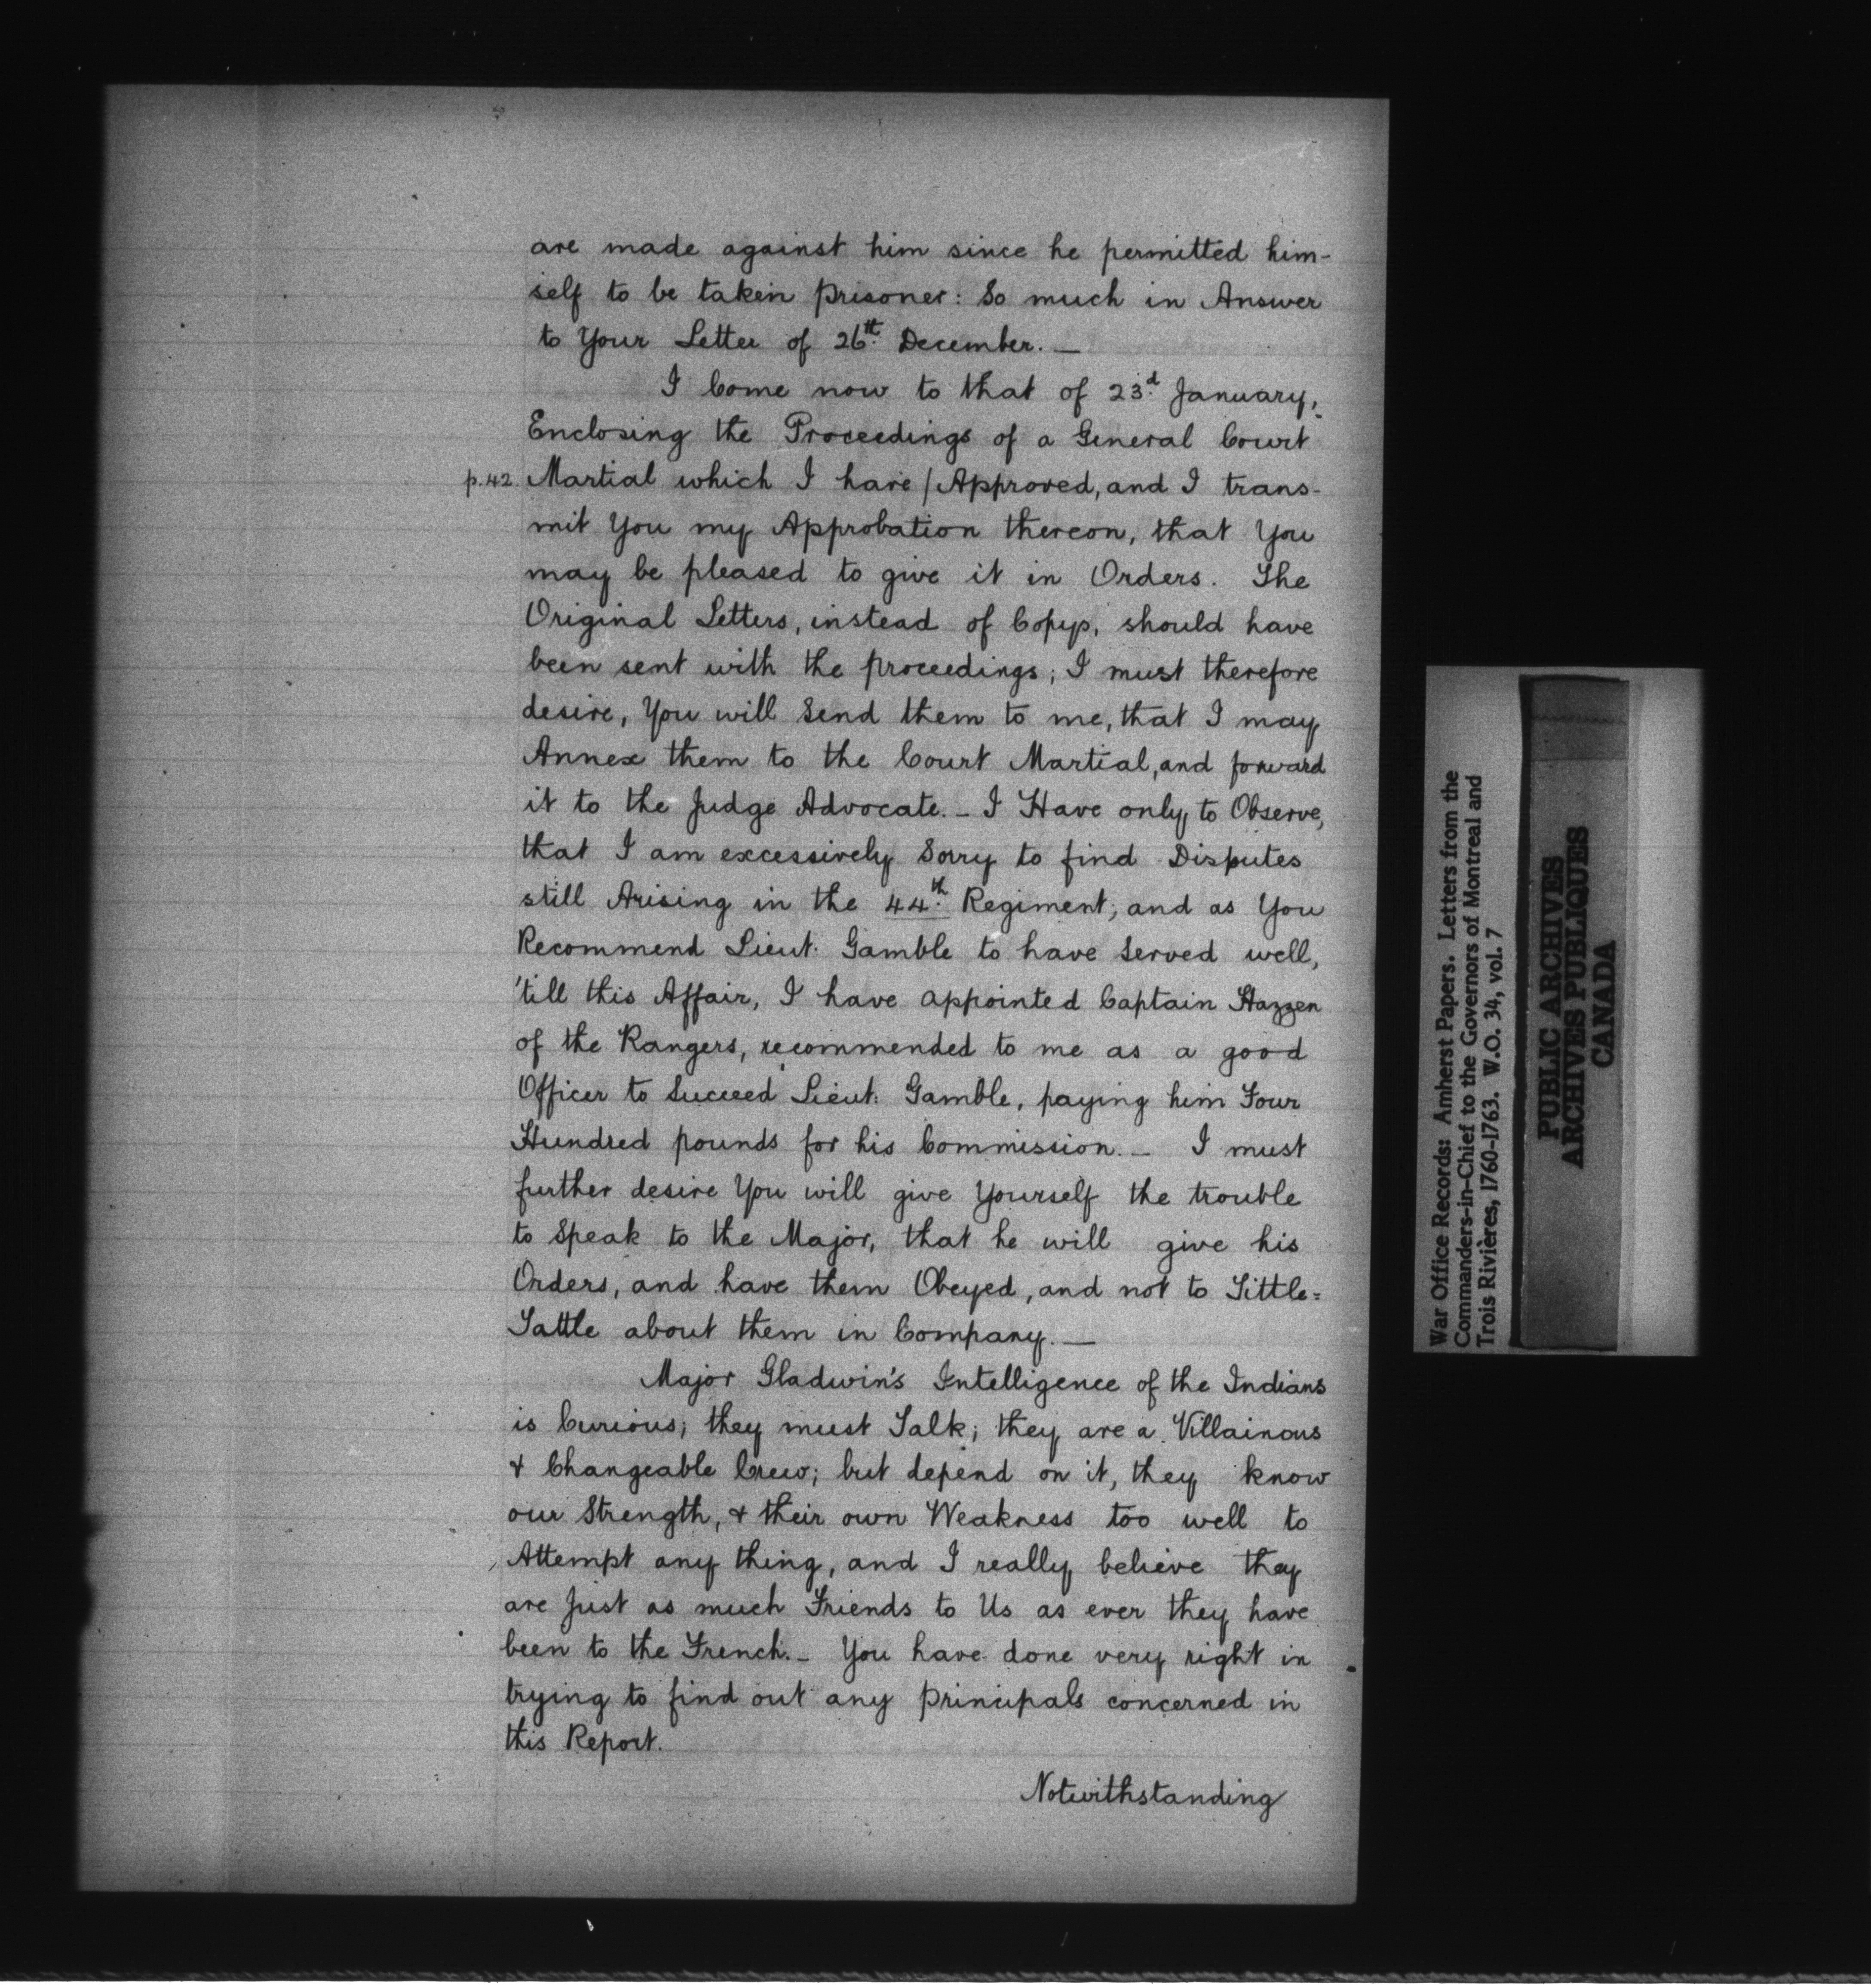 are made against him since he permitted him-
self to be taken prisoner: So much in Answer
to Your Letter of 26th. December. —
I Come now to that of 23d. January,
Enclosing the Proceedings of a General Court
p.42. Martial which I have / Approved, and I trans-
mit You my Approbation thereon, that You
may be pleased to give it in Orders. The
Original Letters, instead of Copys, should have
been sent with the proceedings; I must therefore
desire, You will Send them to me, that I may
Annex them to the Court Martial, and forward
it to the Judge Advocate. — I Have only to Observe,
that I am excessively Sorry to find Disputes
still Arising in the 44th. Regiment; and as You
Recommend Lieut. Gamble to have Served well,
'till this Affair, I have appointed Captain Hazzen
of the Rangers, recommended to me as a good
Officer to Succeed Lieut. Gamble, paying him Four
Hundred pounds for his Commission. — I must
further desire You will give Yourself the trouble
to Speak to the Major, that he will give his
Orders, and have them Obeyed, and not to Tittle=
Tattle about them in Company. —
Major Gladwin's Intelligence of the Indians
is Curious; they must Talk; they are a Villainous
& Changeable Crew; but depend on it, they know
our Strength, & their own Weakness too well to
Attempt any thing, and I really believe they
are Just as much Friends to Us as ever they have
been to the French. — You have done very right in
trying to find out any principals concerned in
this Report.
Notwithstanding
War Office Records: Amherst Papers. Letters from the
Commanders-in-Chief to the Governors of Montreal and
Trois Rivières, 1760-1763. W.O. 34, vol. 7
PUBLIC ARCHIVES
ARCHIVES PUBLIQUES
CANADA